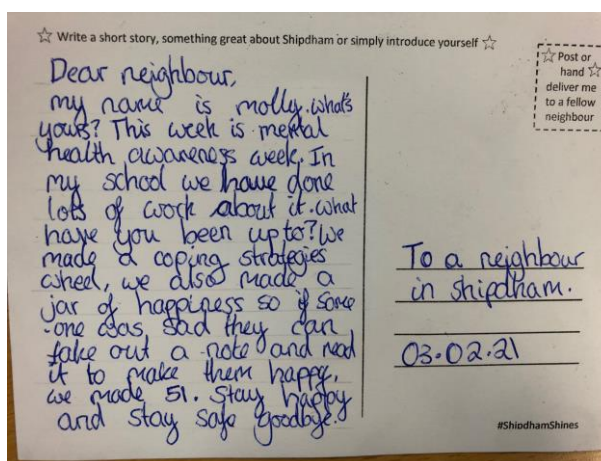 ☆ Write a short story, something great about Shipdham or simply introduce yourself ☆
Dear neighbour,
my name is molly. what's
yours? This week is mental
health awareness week. In
my school we have done
lots of work about it. what
have you been up to? we
made a coping strategies
wheel, we also made a
jar of happiness so if some
one was sad they can
take out a note and read
it to make them happy,
we made 51. Stay happy
and stay safe goodbye.
☆ Post or
hand ☆
deliver me
to a fellow
neighbour
To a neighbour
in shipdham.
03.02.21
#ShipdhamShines